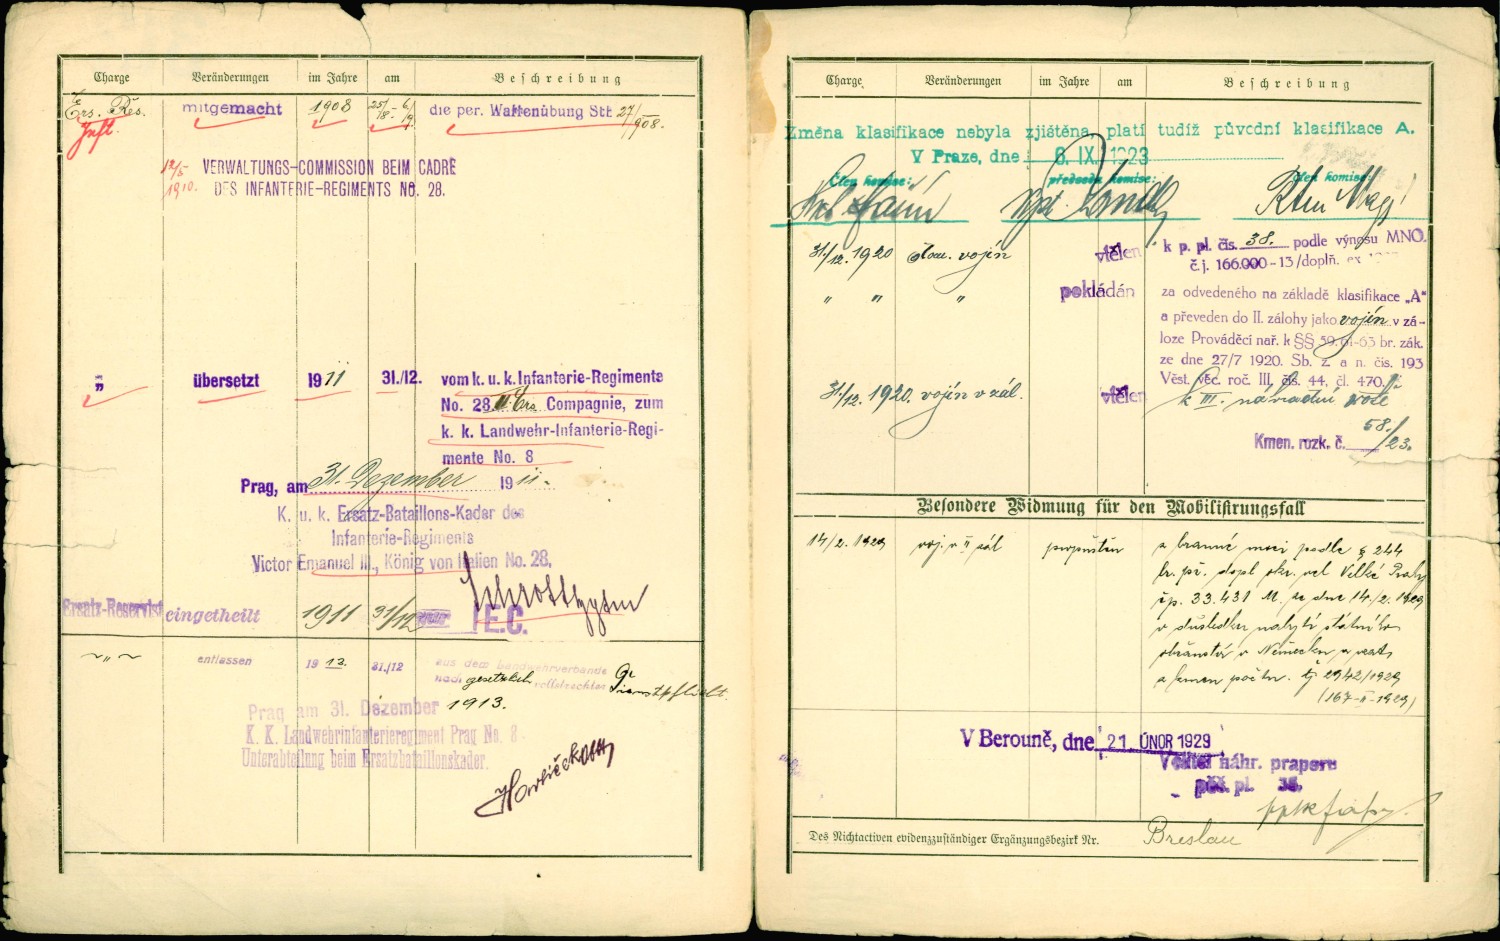 Charge Veränderungen im Jahre am Beschreibung
Ers. Res. mitgemacht 1908 25/8.- 6/9. die per. Waffenübung Stt. 27/908.
Inft.
12/5 1910. VERWALTUNGS-COMMISSION BEIM CADRE
DES INFANTERIE-REGIMENTS No. 28.
„ übersetzt 1911 31./12. vom k. u. k. Infanterie-Regimente
No. 28 II Ers. Compagnie, zum
k. k. Landwehr-Infanterie-Regi-
mente No. 8
Prag, am 31. Dezember 1911.
K. u. k. Ersatz-Bataillons-Kader des
Infanterie-Regiments
Victor Emanuel III., König von Italien No. 28,
Ersatz-Reservist eingetheilt 1911 31/12 E.C.
„ entlassen 1913. 31./12 aus dem Landwehrverbande
nach gesetzlich vollstreckter Dienstpflicht.
Prag am 31. Dezember 1913.
K. K. Landwehrinfanterieregiment Prag No. 8
Unterabteilung beim Ersatzbataillonskader.
Charge Veränderungen im Jahre am Beschreibung
Změna klasifikace nebyla zjištěna, platí tudíž původní klasifikace A.
V Praze, dne 6. IX. 1923
Člen komise: předseda komise: člen komise:
31./12. 1920 čsl. vojín vtělen k p. pl. čís. 38. podle výnosu MNO.
č. j. 166.000-13/doplň. ex
„ „ „ pokládán za odvedeného na základě klasifikace „A“
a převeden do II. zálohy jako vojín v zá-
loze Prováděcí nař. k §§ 59, 61-63 br. zák.
ze dne 27/7 1920. Sb. z. a n. čís. 193
Věst. věc. roč. III, čís. 44, čl. 470.
31./12. 1920. vojín v zál. vtělen k III. náhradní rotě
Kmen. rozk. č. 58./23.
Besondere Widmung für den Mobilisirungsfall
14/2. 1929 voj. v II zál propuštěn z branné moci podle § 244
br. př. dopl. okr. vel. Velké Prahy
čp. 33.431 M. ze dne 14./2. 1929
v důsledku nabytí státního
občanství v Německu
č. j. 2942/1929
(167-II-1929)
V Berouně, dne 21. ÚNOR 1929
Velitel náhr. praporu
pěš. pl. 38.
Des Nichtactiven evidenzzuständiger Ergänzungsbezirk Nr. Breslau